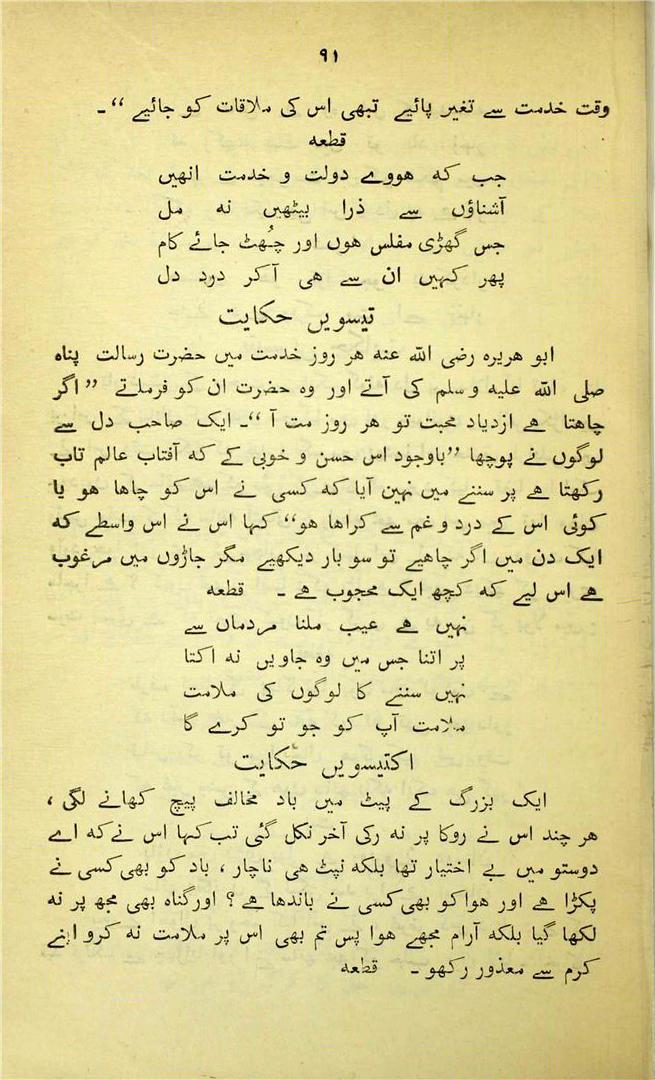 ۹۱
وقت خدمت سے تغیر پائیے تبھی اس کی ملاقات کو جائیے “ ۔
قطعه
جب که هووے دولت و خدمت انھیں
آشناؤں سے ذرا بیٹھیں نه مل
جس گھڑی مفلس هوں اور چُھٹ جائے کام
پھر کہیں ان سے هی آ کر درد دل
تیسویں حکایت
ابو هریره رضی الله عنه هر روز خدمت میں حضرت رسالت پناه
صلی الله علیه و سلم کی آتے اور وه حضرت ان کو فرماتے ”اگر
چاهتا هے ازدیاد محبت تو هر روز مت آ “۔ ایک صاحب دل سے
لوگوں نے پوچھا ”باوجود اس حسن و خوبی کے که آفتاب عالم تاب
رکھتا هے پر سننے میں نہین آیا که کسی نے اس کو چاها هو یا
کوئی اس کے درد و غم سے کراها هو“ کہا اس نے اس واسطے که
ایک دن میں اگر چاهیے تو سو بار دیکھیے مگر جاڑوں میں مرغوب
هے اس لیے که کچھ ایک محجوب هے ۔ قطعه
نہیں هے عیب ملنا مردماں سے
پر اتنا جس میں وه جاویں نه اکتا
نہیں سننے کا لوگوں کی ملامت
ملامت آپ کو جو تو کرے گا
اکتیسویں حکایت
ایک بزرگ کے پیٹ میں باد مخالف پیچ کھانے لگی ،
هر چند اس نے روکا پر نه رکی آخر نکل گئی تب کہا اس نے که اے
دوستو میں بے اختیار تھا بلکه نپٹ هی ناچار ، باد کو بھی کسی نے
پکڑا هے اور هوا کو بھی کسی نے باندها هے ؟ اور گناه بھی مجھ پر نه
لکھا گیا بلکه آرام مجھے هوا پس تم بھی اس پر ملامت نه کرو اپنے
کرم سے معذور رکھو ۔ قطعه